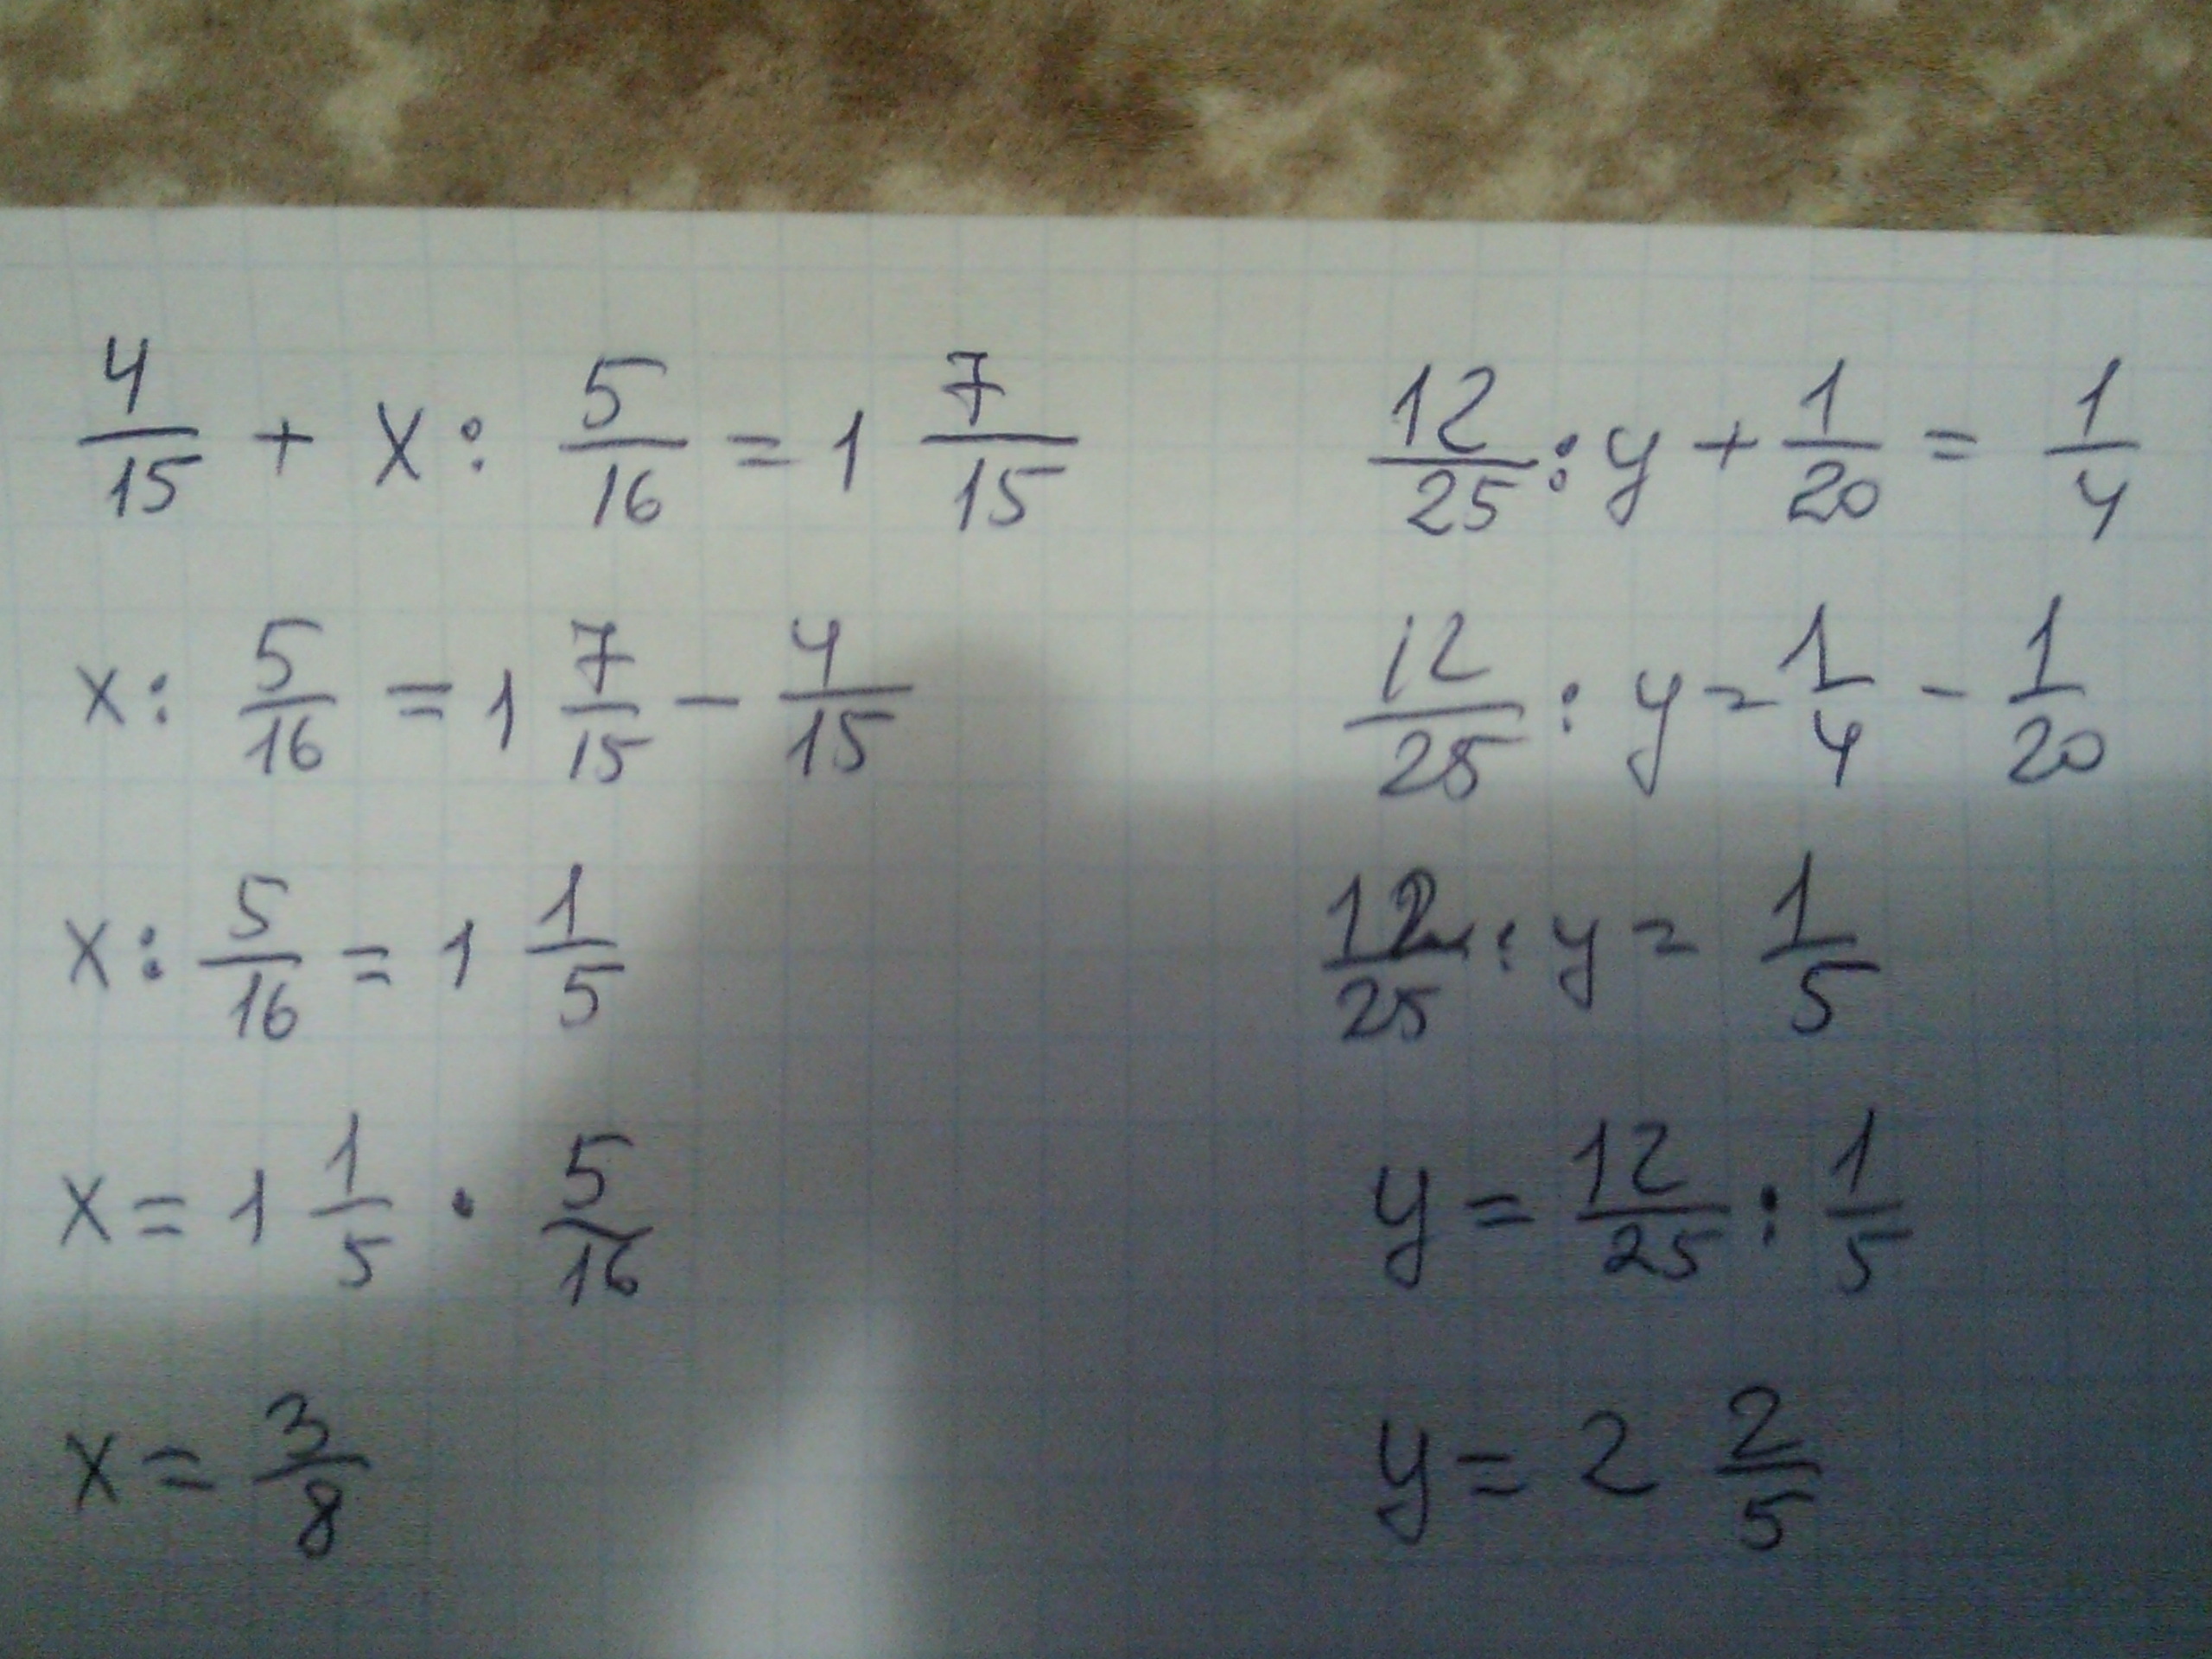 4/15 + x : 5/16 = 1 7/15
x : 5/16 = 1 7/15 - 4/15
x : 5/16 = 1 1/5
x = 1 1/5 · 5/16
x = 3/8
12/25 : y + 1/20 = 1/4
12/25 : y = 1/4 - 1/20
12/25 : y = 1/5
y = 12/25 : 1/5
y = 2 2/5